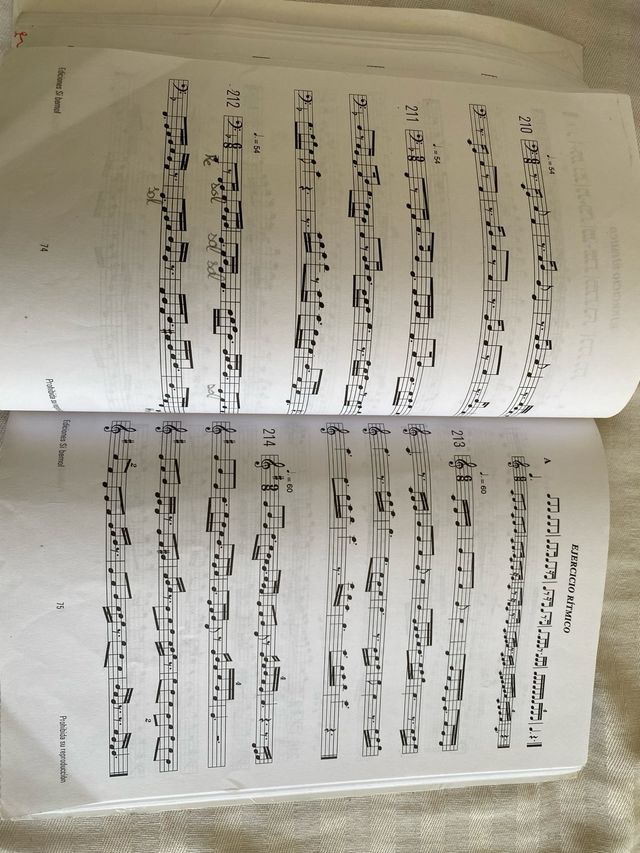 210
♩. = 54
211
♩. = 54
212
♩. = 54
sol sol sol
sol
Ediciones Si bemol
74
EJERCICIO RÍTMICO
A
213
♩. = 60
214
♩. = 60
4
4
2
2
Ediciones Si bemol
75
Prohibida su reproducción